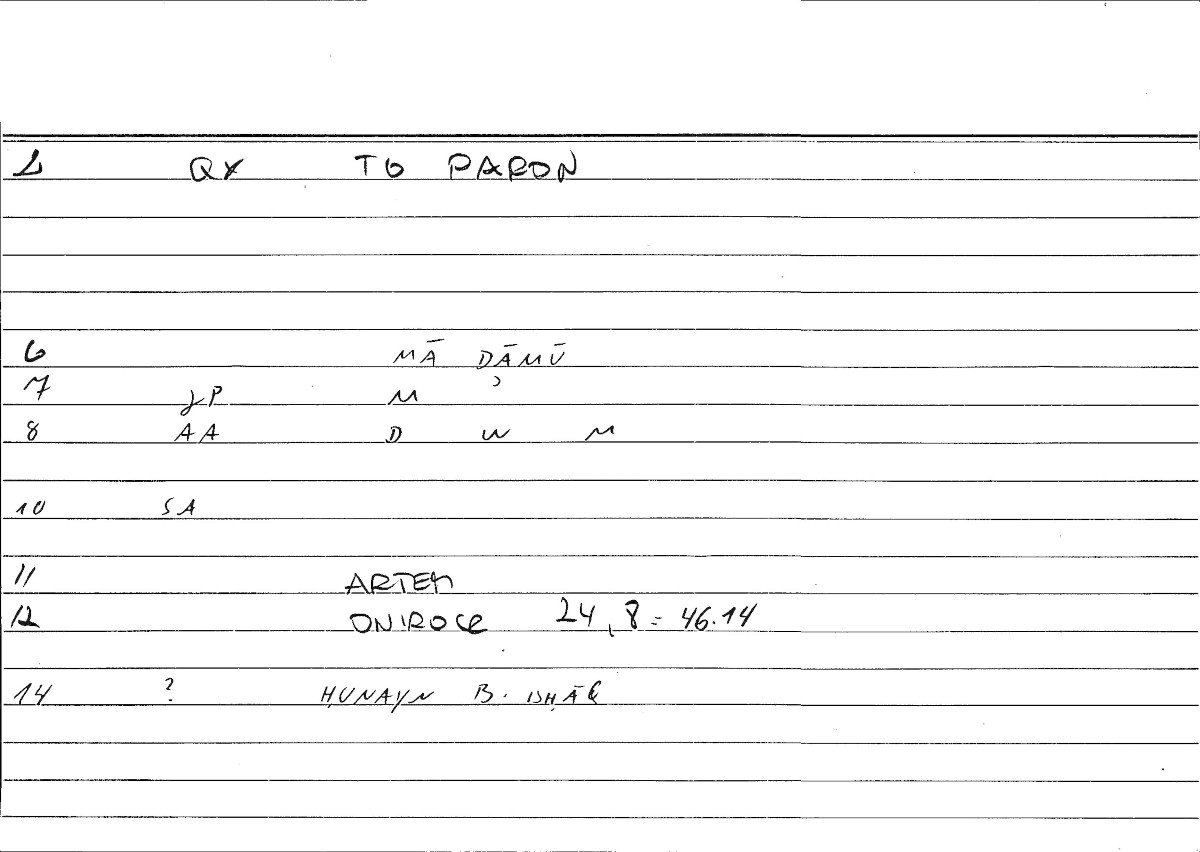 1 QX TO PARON
6 MĀ DĀMŪ
7 ɣP M
8 AA D W M
10 SA
11 ARTEM
12 ONIROCR 24,8 = 46.14
14 ? ḤUNAYN B. ISḤĀQ